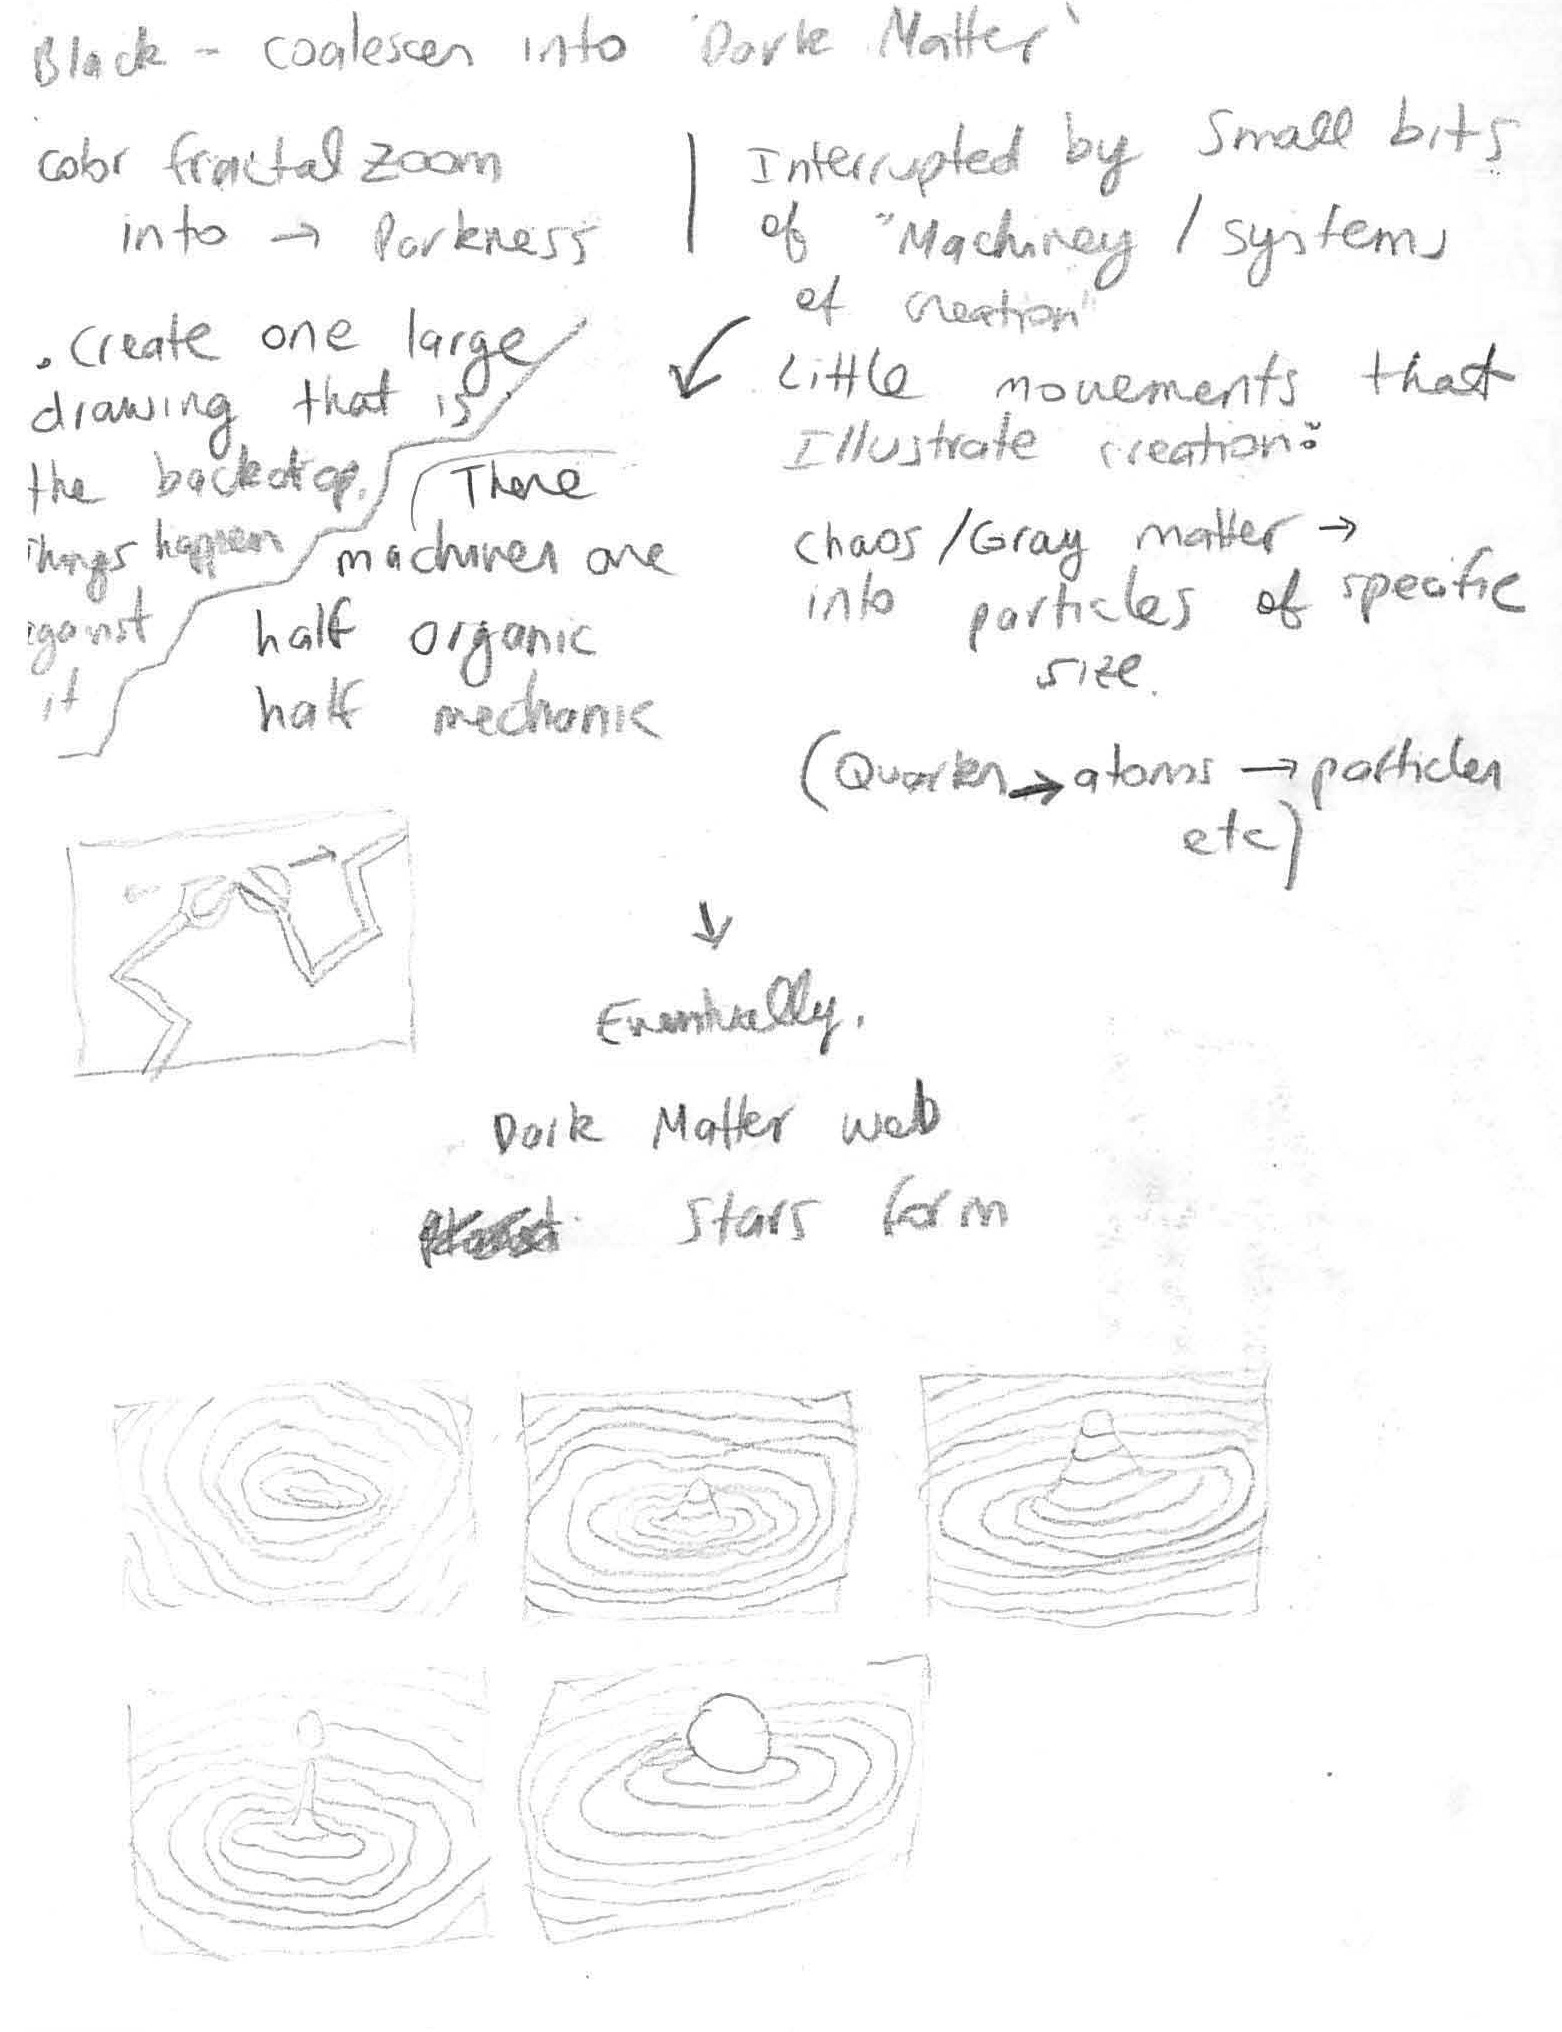 Black - coalesces into 'Dark Matter'
color fractal zoom
into → Darkness
Interrupted by small bits
of "Machinery / systems
of creation"
. create one large
drawing that is
the backdrop.
things happen
against
it
These
machines are
half organic
half mechanic
Little movements that
Illustrate creation:
chaos / Gray matter →
into particles of specific
size.
(Quarks → atoms → particles
etc)
↓
Eventually.
Dark Matter web
stars form